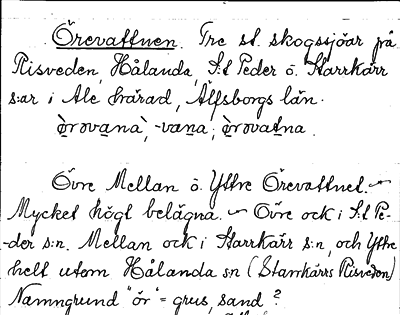 Örevattnen. Tre st. skogssjöar på
Risveden, Hålanda, S:t Peder o. Starrkärr
s:ar i Ale härad, Älfsborgs län.
ö̀rəvana, -vana, ö̀rəvatna.
Övre Mellan o. Yttre Örevattnet. ~
Mycket högt belägna. ~ Övre ock i S:t Pe-
-der s:n. Mellan ock i Starrkärr s:n, och Yttre
helt utom Hålanda sn (Starrkärrs Risveden)
Namngrund "ör" = grus, sand?